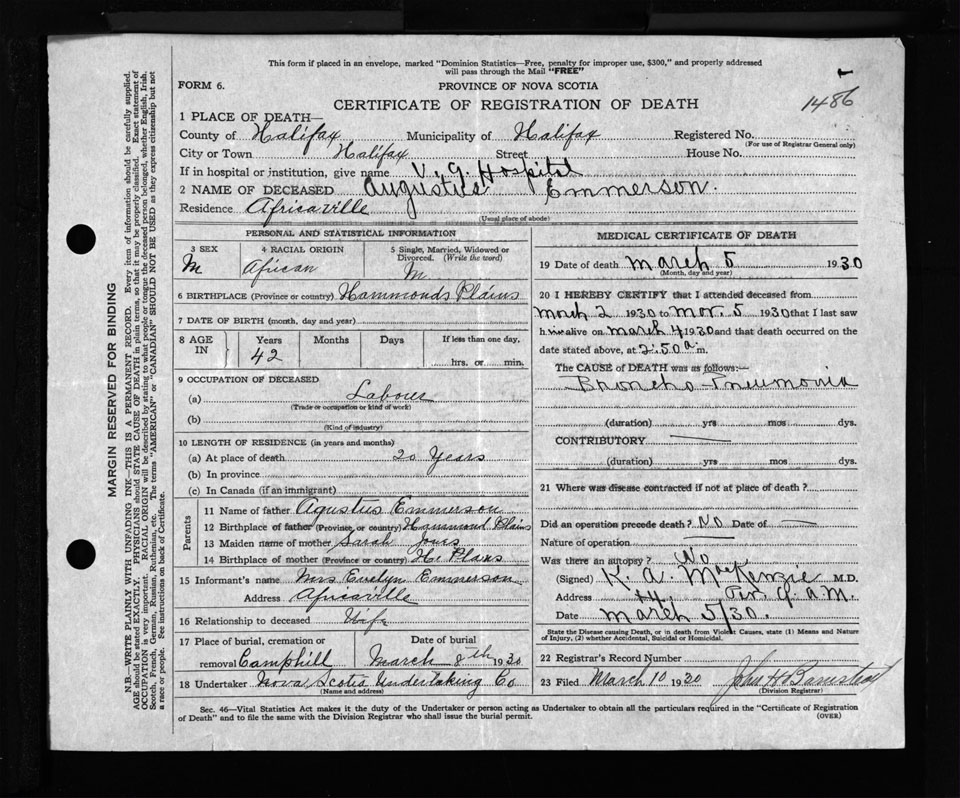 This form if placed in an envelope, marked "Dominion Statistics—Free, penalty for improper use, $300," and properly addressed
will pass through the Mail "FREE"
FORM 6.
PROVINCE OF NOVA SCOTIA
CERTIFICATE OF REGISTRATION OF DEATH
1486
1 PLACE OF DEATH—
County of Halifax Municipality of Halifax Registered No.
(For use of Registrar General only)
City or Town Halifax Street House No.
If in hospital or institution, give name V. G. Hospital
2 NAME OF DECEASED Augustus Emmerson.
Residence Africaville
(Usual place of abode)
PERSONAL AND STATISTICAL INFORMATION
3 SEX 4 RACIAL ORIGIN 5 Single, Married, Widowed or
Divorced. (Write the word)
M African M.
6 BIRTHPLACE (Province or country) Hammonds Plains
7 DATE OF BIRTH (month, day and year)
8 AGE IN Years Months Days If less than one day,
42 hrs. or min.
9 OCCUPATION OF DECEASED
(a) Labour
(Trade or occupation or kind of work)
(b)
(Kind of industry)
10 LENGTH OF RESIDENCE (in years and months)
(a) At place of death 20 Years
(b) In province
(c) In Canada (if an immigrant)
Parents
11 Name of father Agustus Emmerson
12 Birthplace of father (Province, or country) Hammond Plains
13 Maiden name of mother Sarah Jones
14 Birthplace of mother (Province or country) H. Plans
15 Informant's name Mrs Evelyn Emmerson
Address Africaville
16 Relationship to deceased Wife
17 Place of burial, cremation or Date of burial
removal Camphill March 8th 1930
18 Undertaker Nova Scotia Undertaking Co
(Name and address)
MEDICAL CERTIFICATE OF DEATH
19 Date of death March 5 1930
(Month, day and year)
20 I HEREBY CERTIFY that I attended deceased from
March 2 1930 to Mar. 5 1930 that I last saw
h im alive on March 4 1930 and that death occurred on the
date stated above, at 2:50 a m.
The CAUSE of DEATH was as follows:—
Broncho-Pneumonia
(duration) yrs mos dys.
CONTRIBUTORY
(duration) yrs mos dys.
21 Where was disease contracted if not at place of death?
Did an operation precede death? No Date of
Nature of operation
Was there an autopsy? No
(Signed) K. A. MacKenzie M.D.
Address
Date March 5/30.
State the Disease causing Death, or in death from Violent Causes, state (1) Means and Nature
of Injury, (2) whether Accidental, Suicidal or Homicidal.
22 Registrar's Record Number
23 Filed March 10 1930
(Division Registrar)
Sec. 46—Vital Statistics Act makes it the duty of the Undertaker or person acting as Undertaker to obtain all the particulars required in the "Certificate of Registration
of Death" and to file the same with the Division Registrar who shall issue the burial permit.
(OVER)
MARGIN RESERVED FOR BINDING
N.B.—WRITE PLAINLY WITH UNFADING INK—THIS IS A PERMANENT RECORD. Every item of information should be carefully supplied.
AGE should be stated EXACTLY. PHYSICIANS should STATE CAUSE OF DEATH in plain terms, so that it may be properly classified. Exact statement of
OCCUPATION is very important. RACIAL ORIGIN will be described by stating to what people or tongue the deceased person belonged, whether English, Irish,
Scotch, French, German, Russian, Ruthenian, etc. The terms "AMERICAN" or "CANADIAN" SHOULD NOT BE USED as they express citizenship but not
a race or people. See instructions on back of Certificate.